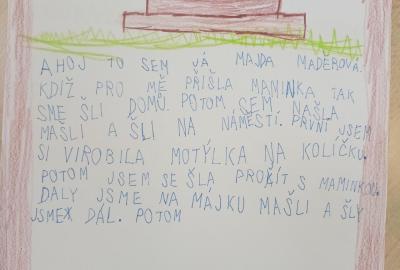 AHOJ TO SEM JÁ MAJDA MADĚROVÁ.
KDÍŽ PRO MĚ PŘIŠLA MAMINKA TAK
SME ŠLI DOMU. POTOM SEM NAŠLA
MAŠLI A ŠLI NA NÁMĚSTÍ. PRVNÍ JSEM
SI VIROBILA MOTÝLKA NA KOLÍČKU.
POTOM JSEM SE ŠLA PROJÍT S MAMINKOU.
DALY JSME NA MÁJKU MAŠLI A ŠLY
JSME DÁL. POTOM